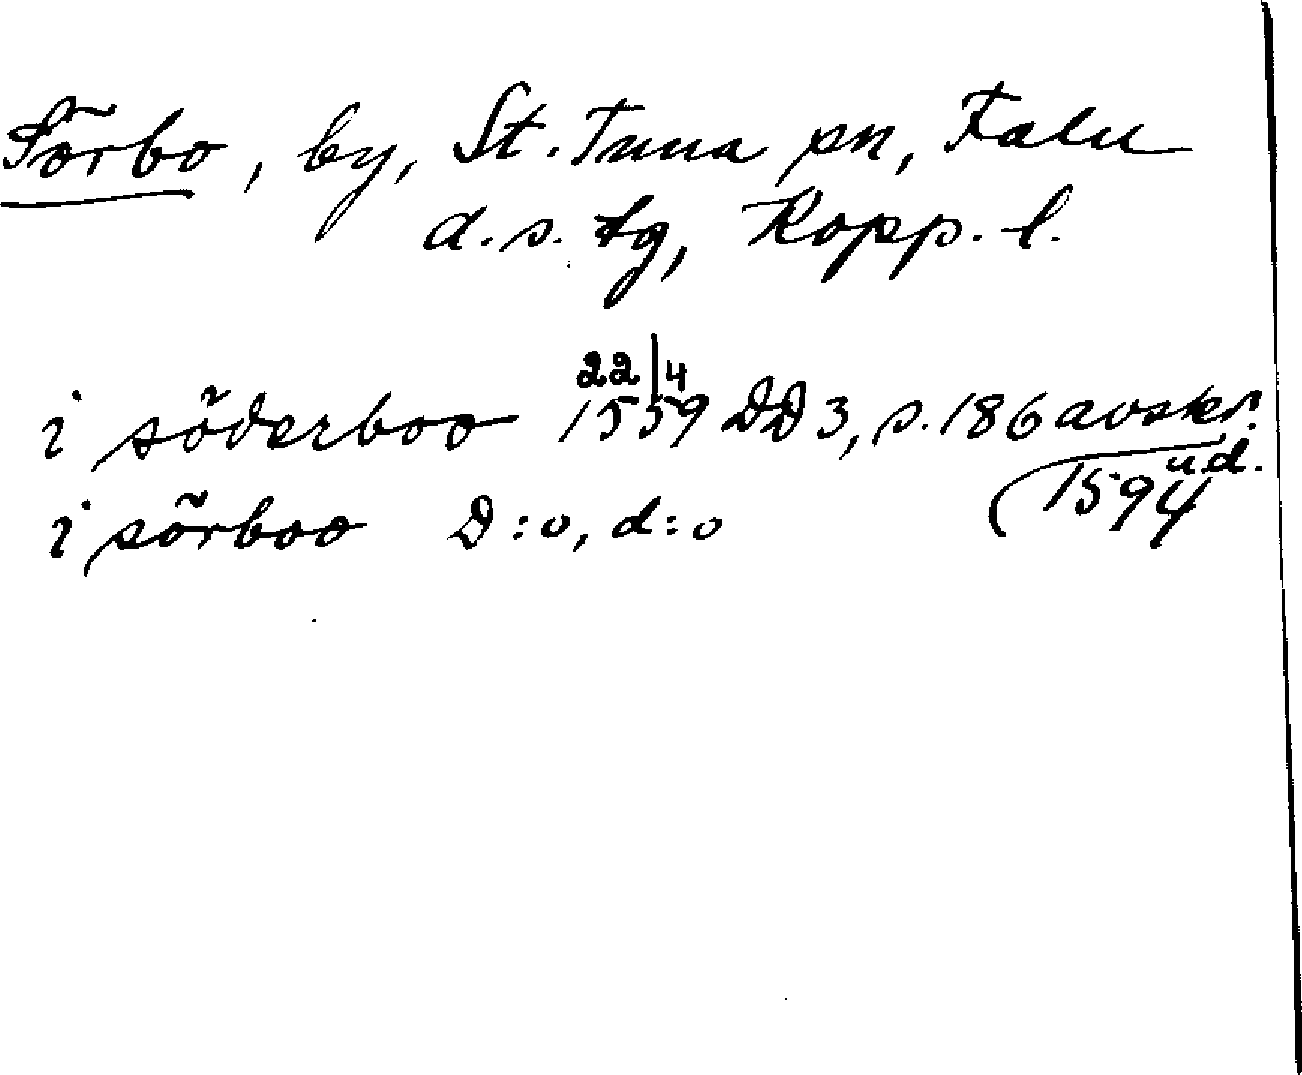 Sörbo, by, St. Tuna sn, Falu
d. s. tg, Kopp. l.
i söderboo 22/4 1559 DD 3, s. 186 avskr.
i sörboo D:o, d:o (1594 u.d.